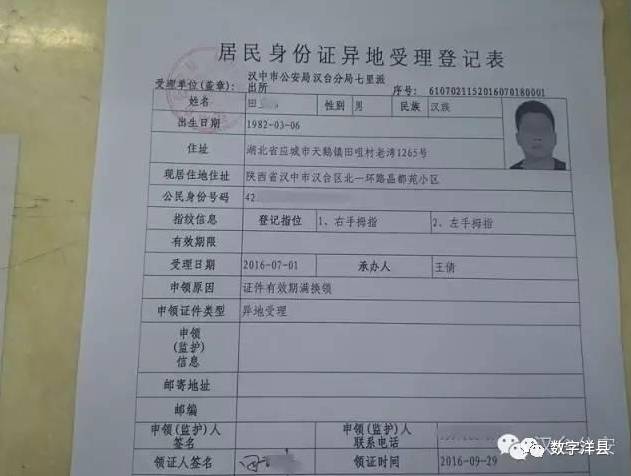 居民身份证异地受理登记表
受理单位(盖章): 汉中市公安局汉台分局七里派出所 序号: 6107021152016070180001
姓名 田 性别 男 民族 汉族
出生日期 1982-03-06
住址 湖北省应城市天鹅镇田咀村老湾1265号
现居住地住址 陕西省汉中市汉台区北一环路晶都苑小区
公民身份号码 42
指纹信息 登记指位 1、右手拇指 2、左手拇指
有效期限
受理日期 2016-07-01 承办人 王倩
申领原因 证件有效期满换领
申领证件类型 异地受理
申领
(监护)
信息
邮寄地址
邮编
申领(监护)人签名 申领(监护)人联系电话
领证人签名 领证时间 2016-09-29
数字洋县